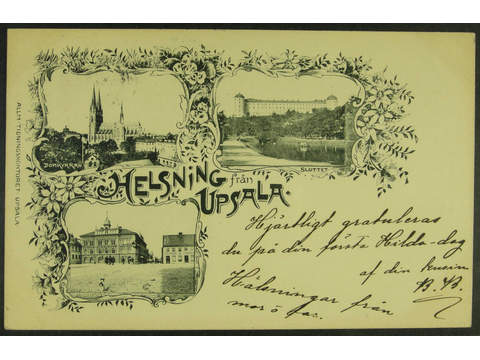 ALLM TIDNINGSKONTORET UPSALA
DOMKYRKAN
SLOTTET
HELSNING från UPSALA.
Hjärtligt gratuleras
du på din första Hilda-dag
af din kusin
B.B.
Hälsningar från
mor o far.